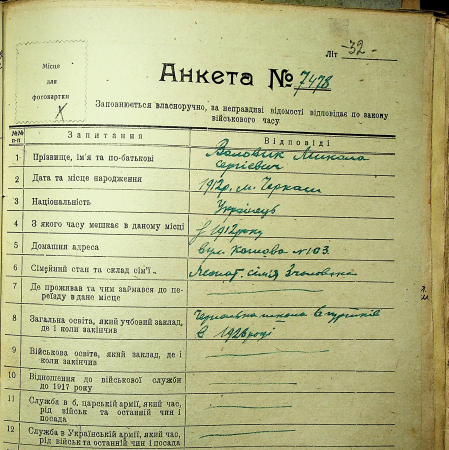 Місце
для
фотокартки
Літ -32-
Анкета № 7478
Заповнюється власноручно, за неправдиві відомості відповідає по закому
військового часу
№№ п-п Запитання Відповіді
1 Прізвище, ім'я та по-батькові Воловик Микола
Сергієвич
2 Дата та місце народження 1912р. м. Черкаси
3 Національність Українець
4 З якого часу мешкає в даному місці з 1912 року
5 Домашня адреса вул. №103.
6 Сімейний стан та склад сім'ї сімія 3 чоловека
7 Де проживав та чим займався до пе-
реїзду в дане місце
8 Загальна освіта, який учбовий заклад,
де і коли закінчив
школа
в 1928 році
9 Військова освіта, який заклад, де і
коли закінчив
10 Відношення до військової служби
до 1917 року
11 Служба в б. царській армії, який час,
рід військ та останній чин і
посада
12 Служба в Українській армії, який час,
рід військ та останній чин і посада